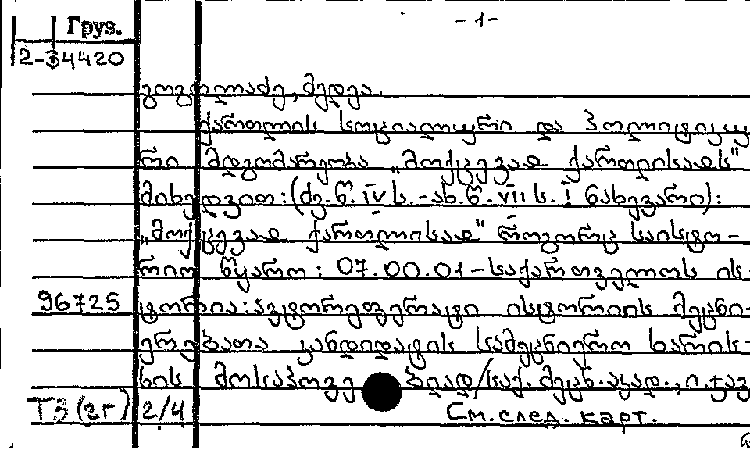 Груз.
-1-
2-34420
გოგოლაძე, მედეა.
ქართლის სოციალური და პოლიტიკუ
რი მდგომარეობა „მოქცევაჲ ქართლისაჲს"
მიხედვით:(ძვ.წ. IV ს.-ახ.წ. VII ს. I ნახევარი):
„მოქცევაჲ ქართლისაჲ" როგორც საისტო-
რიო წყარო: 07.00.01-საქართველოს ის
96725 ტორია:ავტორეფერატი ისტორიის მეცნი-
ერებათა კანდიდატის სამეცნიერო ხარის-
ხის მოსაპოვებლად/საქ. მეცნ. აკად., ი. ჯავ
ТЗ(2г) 2/4 См. след. карт.